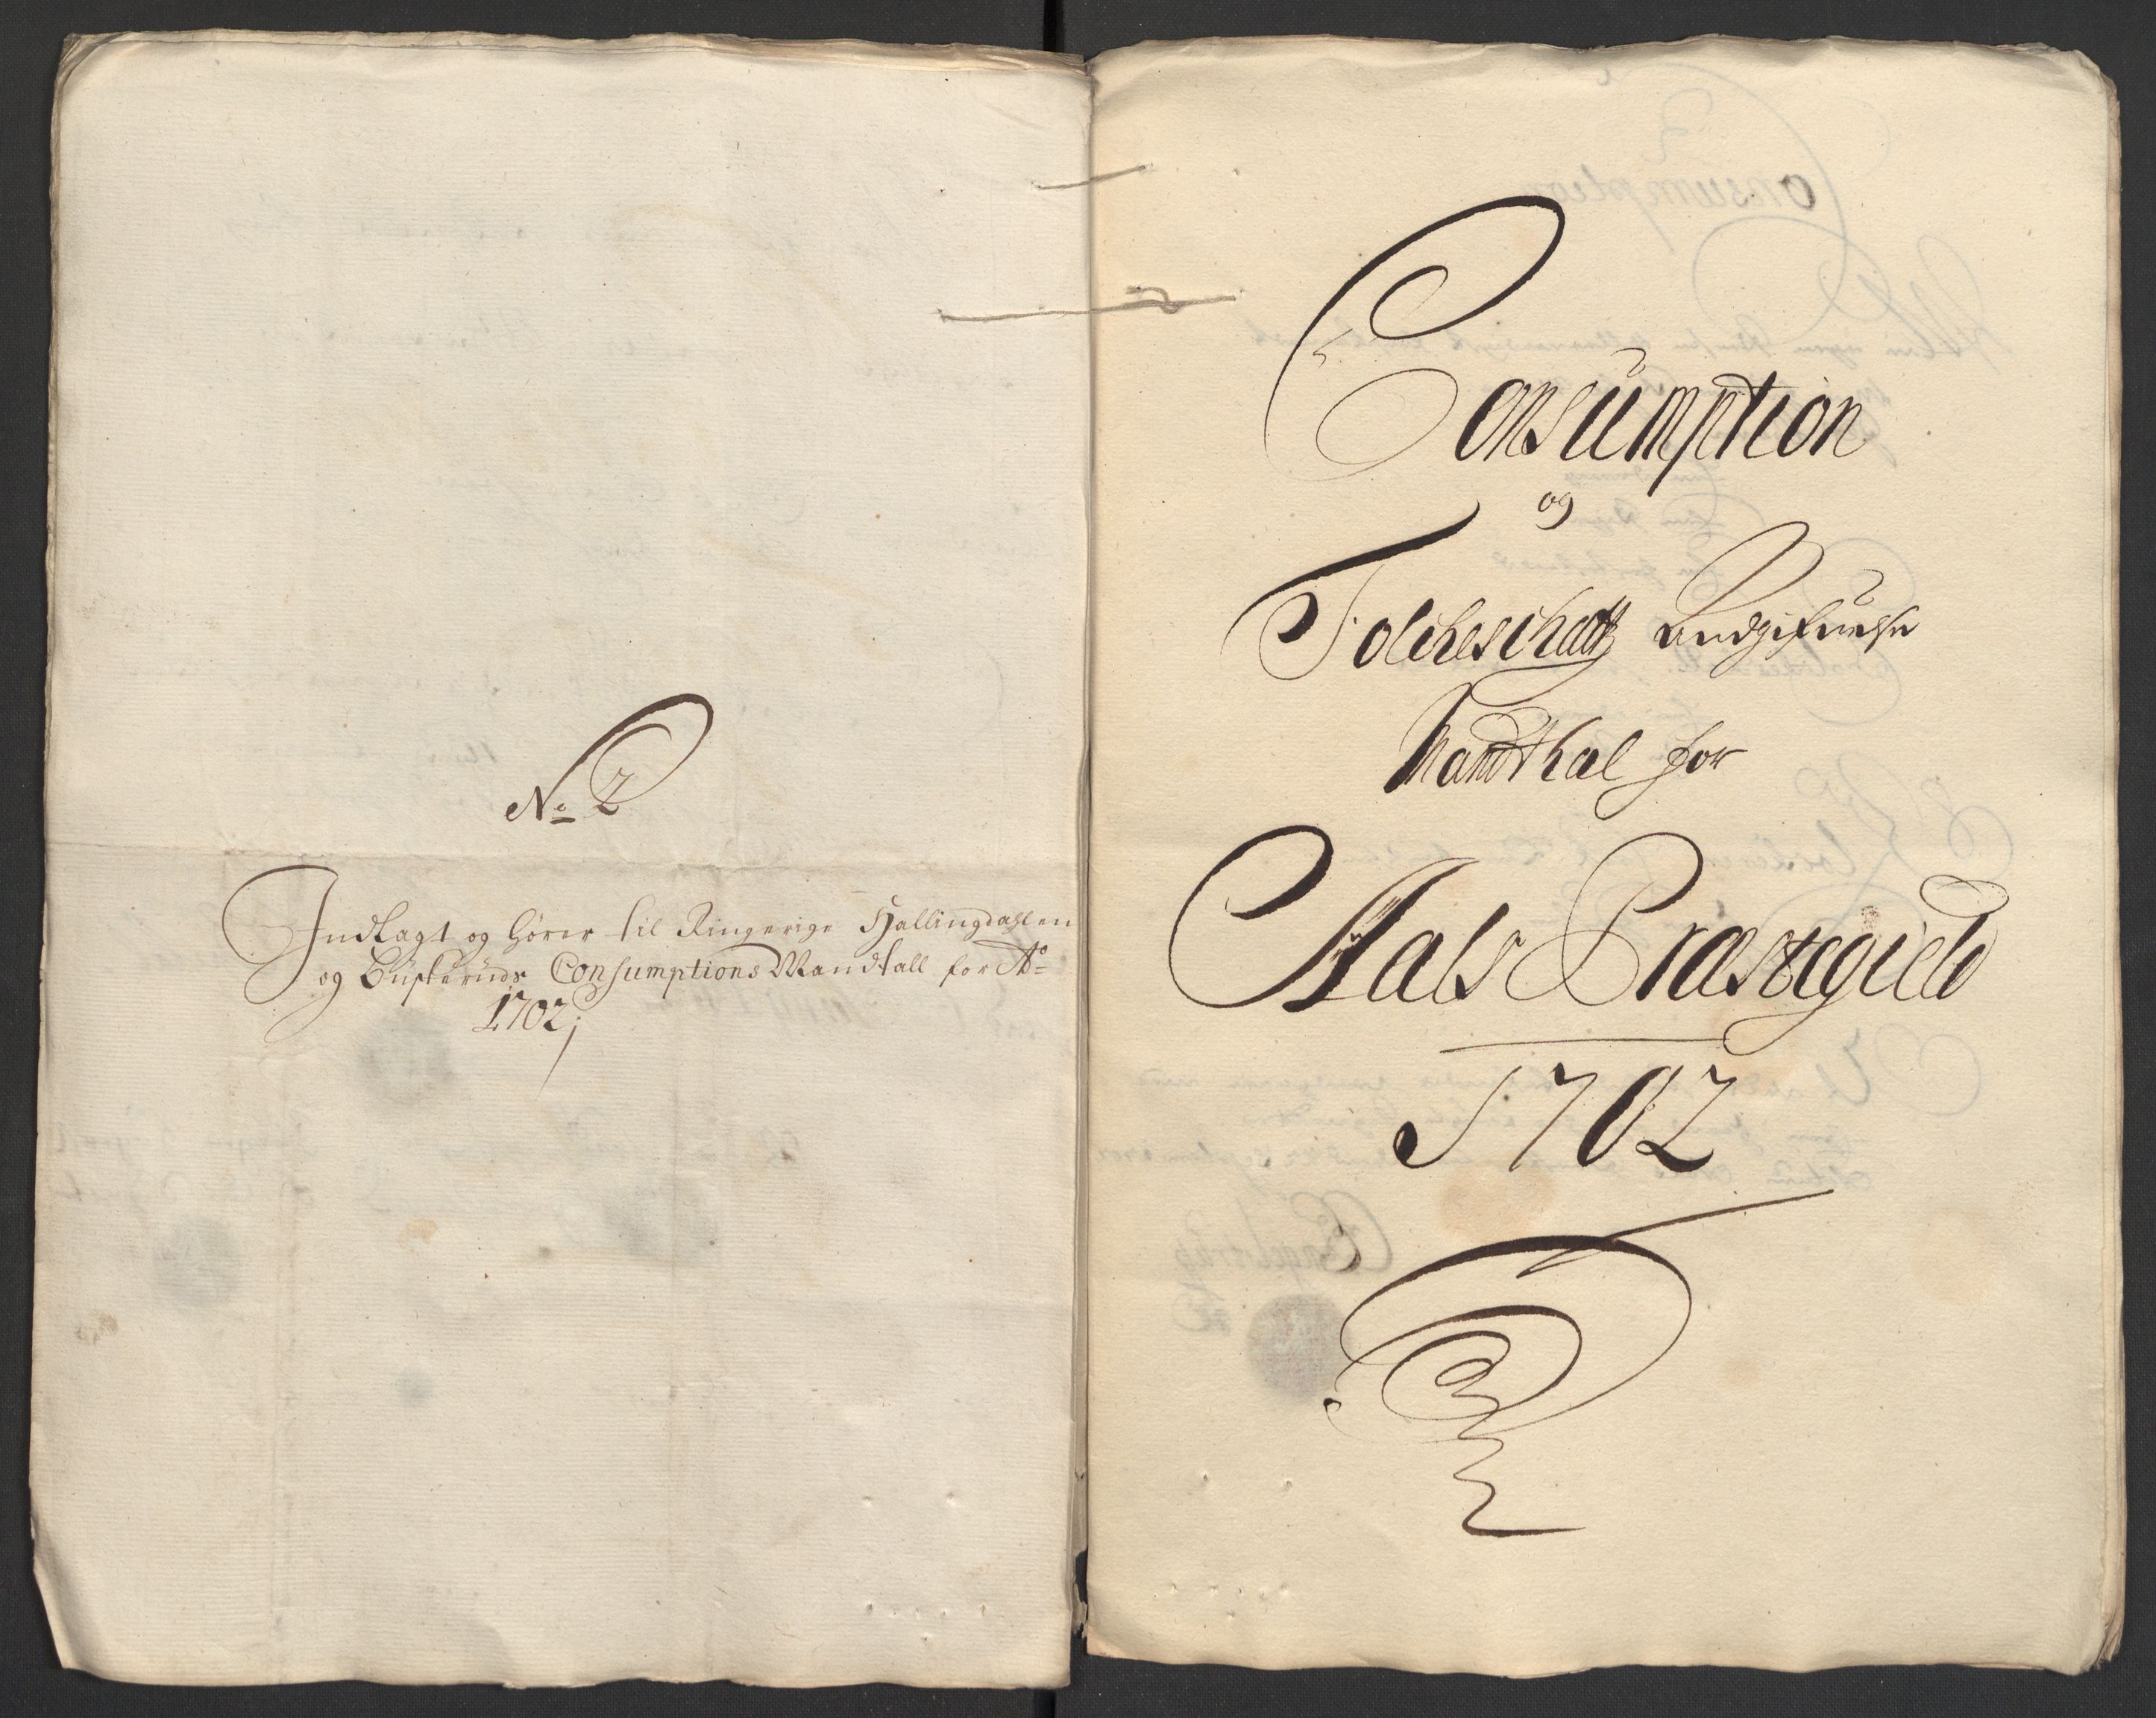 No 2
Indlagt og hörer til Ringerige Hallingdahlen
og Buskeruds Consumptions Mandtall for Ao
1702;
Consumption
og
Folcheschatz
Mandthal for
Aals Præstegield
1702